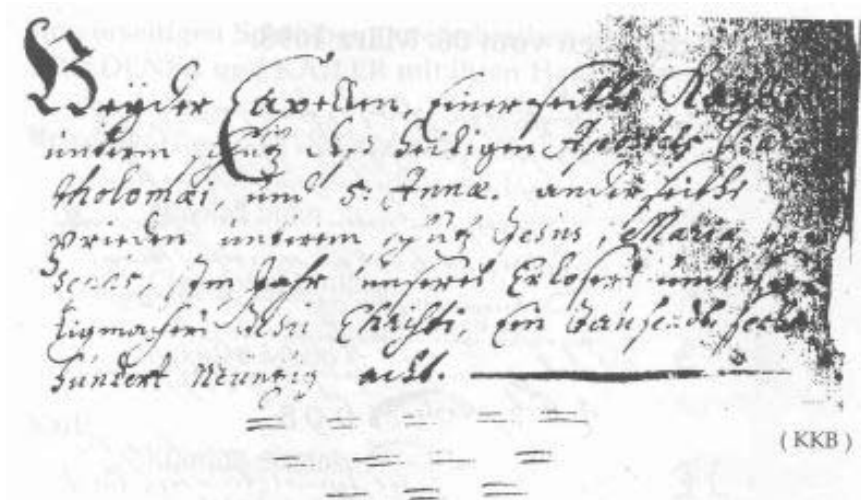 Beyder Capellen, Einerseiths
unterm schutz deß heiligen Apostels Bar
tholomæi und S: Annæ. anderseiths
Vrieden unterem schutz Jesus, Maria,
Im Jahr unseres Erlösers und See
ligmachers Jesu Christi, Ein Tausendt sechs
hundert Neuntzig acht.
( KKB )